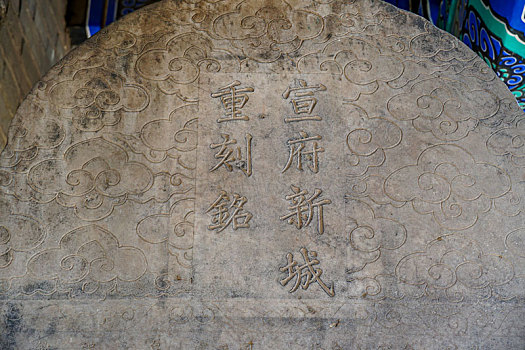 宣府新城
重刻銘